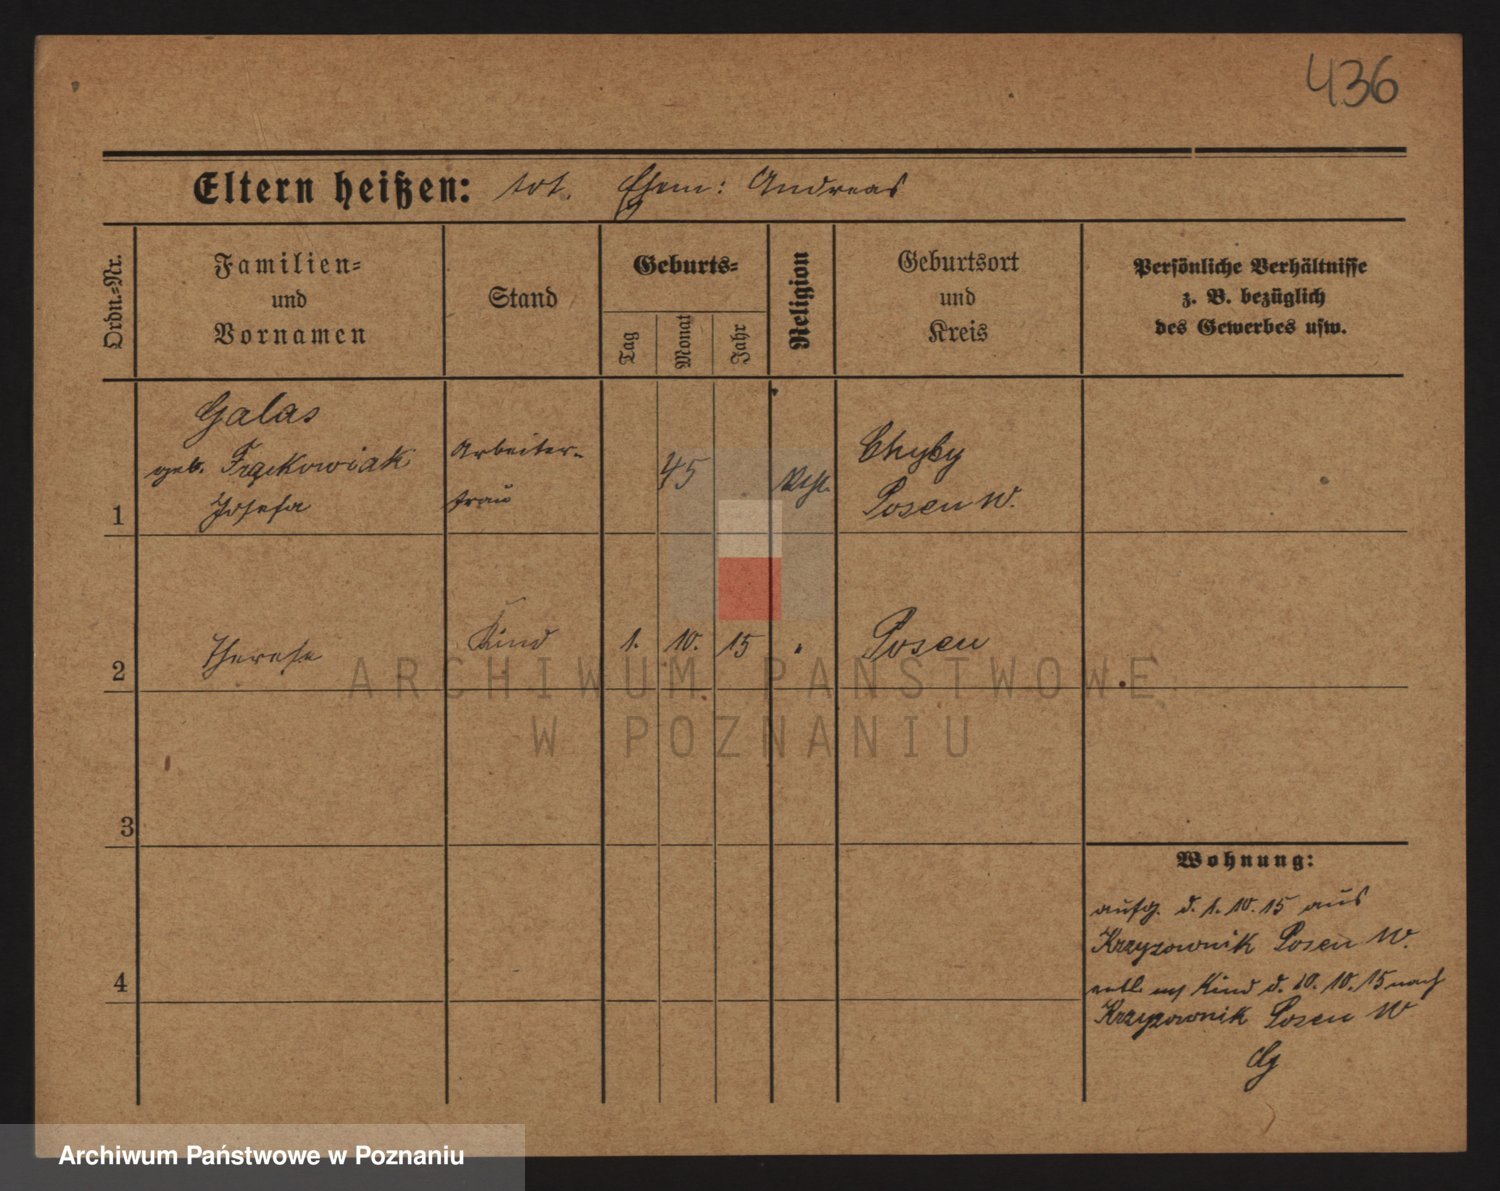 436
Eltern heißen: tot. Ehem: Andreas
Ordn.-Nr.
Familien-
und
Vornamen
Stand
Geburts-
Tag
Monat
Jahr
Religion
Geburtsort
und
Kreis
Persönliche Verhältnisse
z. B. bezüglich
des Gewerbes usw.
Galas
geb. Frąckowiak
Josefa
Arbeiter-
frau
45
Kath.
Chyby
Posen W.
1
Therese
Kind
1. 10. 15
"
Posen
2
ARCHIWUM PAŃSTWOWE
W POZNANIU
3
Wohnung:
aufg. d. 1. 10. 15 aus
Krzyzownik Posen W.
entl. Kind d. 10. 10. 15 nach
Krzyzownik Posen W
4
Archiwum Państwowe w Poznaniu